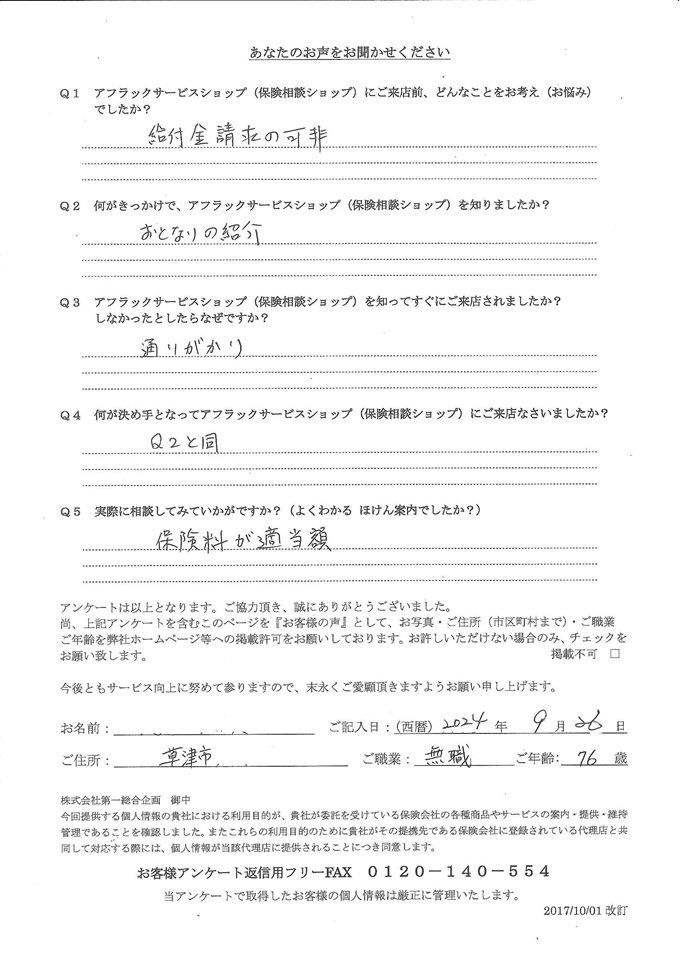 あなたのお声をお聞かせください
Q1 アフラックサービスショップ(保険相談ショップ)にご来店前、どんなことをお考え(お悩み)
でしたか?
給付金請求の可非
Q2 何がきっかけで、アフラックサービスショップ(保険相談ショップ)を知りましたか?
おとなりの紹介
Q3 アフラックサービスショップ(保険相談ショップ)を知ってすぐにご来店されましたか?
しなかったとしたらなぜですか?
通りがかり
Q4 何が決め手となってアフラックサービスショップ(保険相談ショップ)にご来店なさいましたか?
Q2と同
Q5 実際に相談してみていかがですか?(よくわかる ほけん案内でしたか?)
保険料が適当額
アンケートは以上となります。ご協力頂き、誠にありがとうございました。
尚、上記アンケートを含むこのページを『お客様の声』として、お写真・ご住所(市区町村まで)・ご職業
ご年齢を弊社ホームページ等への掲載許可をお願いしております。お許しいただけない場合のみ、チェックを
お願い致します。 掲載不可 □
今後ともサービス向上に努めて参りますので、末永くご愛顧頂きますようお願い申し上げます。
お名前: ご記入日:(西暦) 2024 年 9 月 26 日
ご住所: 草津市 ご職業: 無職 ご年齢: 76 歳
株式会社第一総合企画 御中
今回提供する個人情報の貴社における利用目的が、貴社が委託を受けている保険会社の各種商品やサービスの案内・提供・維持
管理であることを確認しました。またこれらの利用目的のために貴社がその提携先である保険会社に登録されている代理店と共
同して対応する際には、個人情報が当該代理店に提供されることにつき同意します。
お客様アンケート返信用フリーFAX 0120-140-554
当アンケートで取得したお客様の個人情報は厳正に管理いたします。
2017/10/01 改訂